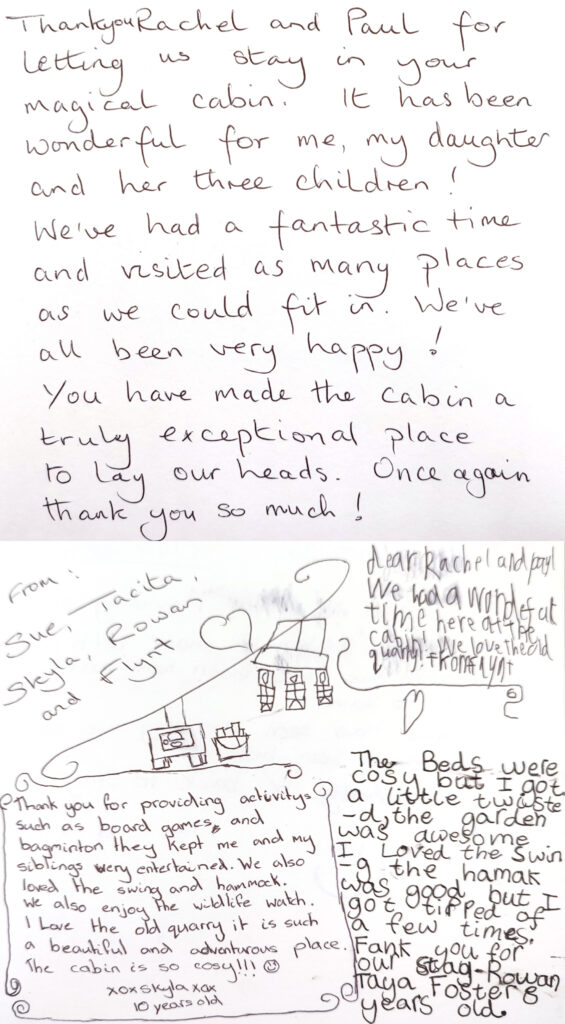 Thankyou Rachel and Paul for
letting us stay in your
magical cabin. It has been
wonderful for me, my daughter
and her three children!
We've had a fantastic time
and visited as many places
as we could fit in. We've
all been very happy!
You have made the cabin a
truly exceptional place
to lay our heads. Once again
thank you so much!
From:
Sue, Tacita,
Skyla, Rowan
and Flynt
dear Rachel and
We had a
time here at the
cabin! We love the old
quarry! from Flynt
Thank you for providing activitys
such as board games, and
bagminton they kept me and my
siblings very entertained. We also
loved the swing and hammock.
We also enjoy the wildlife watch.
I Love the old quarry it is such
a beautiful and adventurous place.
The cabin is so cosy!!!
xoxskyla xox
10 years old
The Beds were
cosy but I got
a little twiste
-d, the garden
was awesome
I Loved the swin
-g the hamak
was good but I
got tipped of
a few times.
Fank you for
our stag-Rowan
Taya Foster 8
years old.